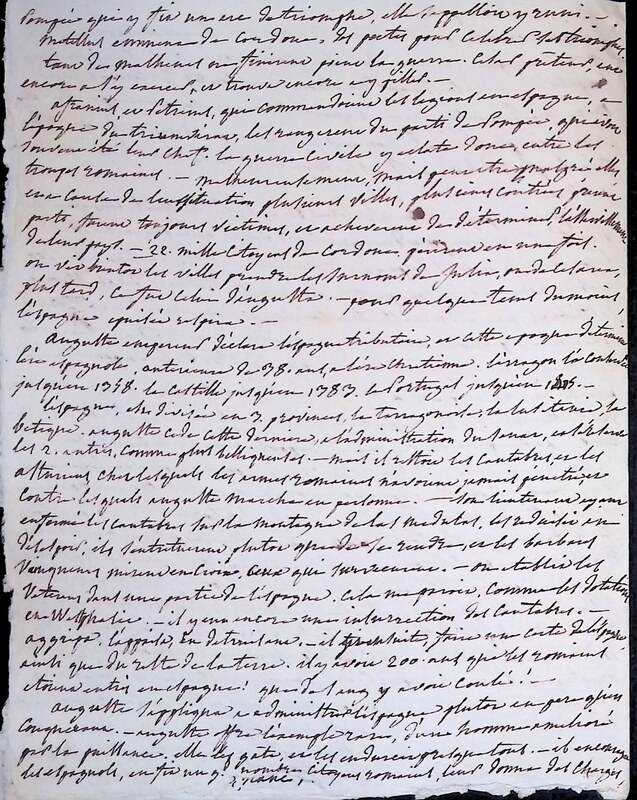 Pompée qui y fit un arc de triomphe, elle s'appelloit
Metellus emmena de Cordoue, des poetes pour célébrer ses triomphes.
tant de malheurs ne finirent point la guerre. César préteur, vint
encore s'y exercer, et trouva encore a y piller. —
afranius, et Petreius, qui commandoient les légions en espagne, a
l'époque du triumvirat, les rangerent du parti de Pompée, qui avoit
souvent été leur chef. la guerre civile y eclata donc, entre les
troupes romaines. — malheureusement, mais peut etre malgré elles
et a cause de leur situation plusieurs villes, plusieurs contrées prirent
parti, furent toujours victimes, et acheverent de déterminer
de leur pays. — 22. mille citoyens de Cordoue, périrent en une fois.
on vit bientot les villes prendre les surnoms de Julia, ou de Cesarea,
plus tard, ce fut celui d'auguste. — pour quelque tems du moins,
l'espagne epuisée respira. —
Auguste empereur déclara l'espagne tributaire, et cette epoque détermine
l'ère espagnole, anterieure de 38. ans, a l'ère chrétienne. l'arragon l'a conservée
jusqu'en 1358. la Castille jusqu'en 1383. le Portugal jusqu'en
l'espagne, est divisée en 3. provinces, la tarragonoise, la lusitanie, la
betique. auguste cede cette derniere, a l'administration du sénat, et
les 2. autres, comme plus belligérantes. — mais il restoit les cantabres, et les
asturiens, chez lesquels les armes romaines n'avoient jamais pénétré, et
contre lesquels auguste marcha en personne. — son lieutenant ayant
enfermé les cantabres sur la montagne de las medulas, les réduisit au
désespoir, ils s'entretuerent plutot que de se rendre, et les barbares
vainqueurs mirent en croix, ceux qui survecurent. — on etablit les
Veterans dans une partie de l'espagne. cela me paroit, comme les dotations
en Westphalie. — il y eut encore une insurrection des Cantabres. —
aggrippa, l'appaisa, en detruisant. — il fit ensuite, faire une carte de l'espagne,
ainsi que du reste de la terre. il y avoit 200. ans que les romains
etoient entrés en espagne! que de sang y avoit coulé! —
Auguste s'appliqua a administrer l'espagne plutot en pere qu'en
conquérant. — auguste offre l'exemple rare, d'un homme amélioré
par la puissance. elle les gate, et les endurcit presque tous. — il encouragea
les espagnols, en fit un g. nombre, citoyens romains, leur donna des charges,